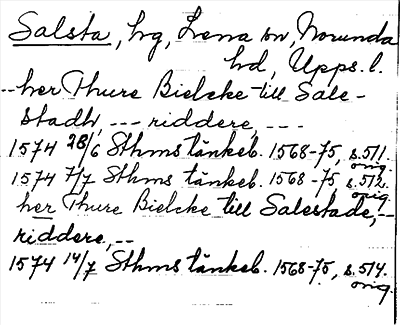 Salsta, hg, Lena sn, Norunda
hd, Upps. l.
--her Thure Bielcke till Sale-
stadh, --- riddere, ---
1574 28/6 Sthms tänkeb. 1568-75, s. 511.
orig.
1574 7/7 Sthms tänkeb. 1568-75, s. 512.
orig.
her Thure Bielcke till Salestade, --
riddere, --
1574 14/7 Sthms tänkeb. 1568-75, s. 514.
orig.